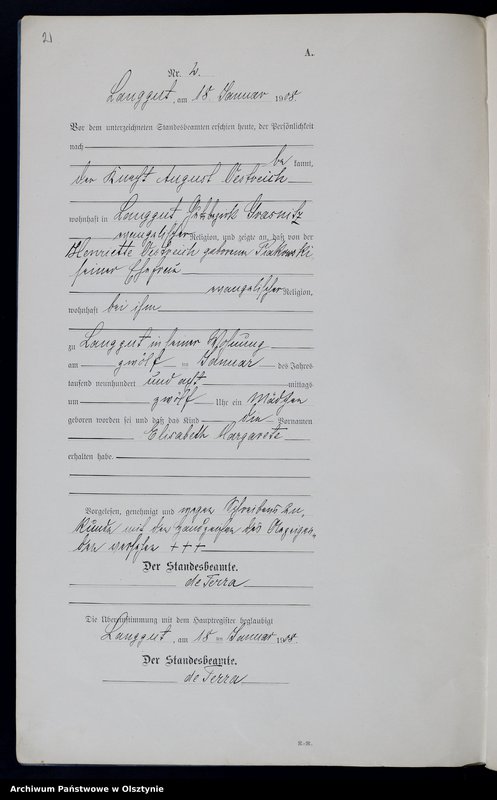 21
A.
Nr. 2.
Langgut, am 18. Januar 1908.
Vor dem unterzeichneten Standesbeamten erschien heute, der Persönlichkeit
nach
be kannt,
der Knecht August Oestreich
wohnhaft in Langgut Gutsbezirk Grasnitz
evangelischer Religion, und zeigte an, daß von der
Henriette Oestreich geborenen
seiner Ehefrau
evangelischer Religion,
wohnhaft bei ihm
zu Langgut in seiner Wohnung
am zwölf ten Januar des Jahres
tausend neunhundert und acht mittags
um zwölf Uhr ein Mädchen
geboren worden sei und daß das Kind den Vornamen
Elisabeth Margarete
erhalten habe.
Vorgelesen, genehmigt und wegen Schreibensun-
kunde mit den Handzeichen des Anzeigen-
den versehen +++
Der Standesbeamte.
de Terra
Die Übereinstimmung mit dem Hauptregister beglaubigt
Langgut, am 18 ten Januar 1908.
Der Standesbeamte.
de Terra
Archiwum Państwowe w Olsztynie